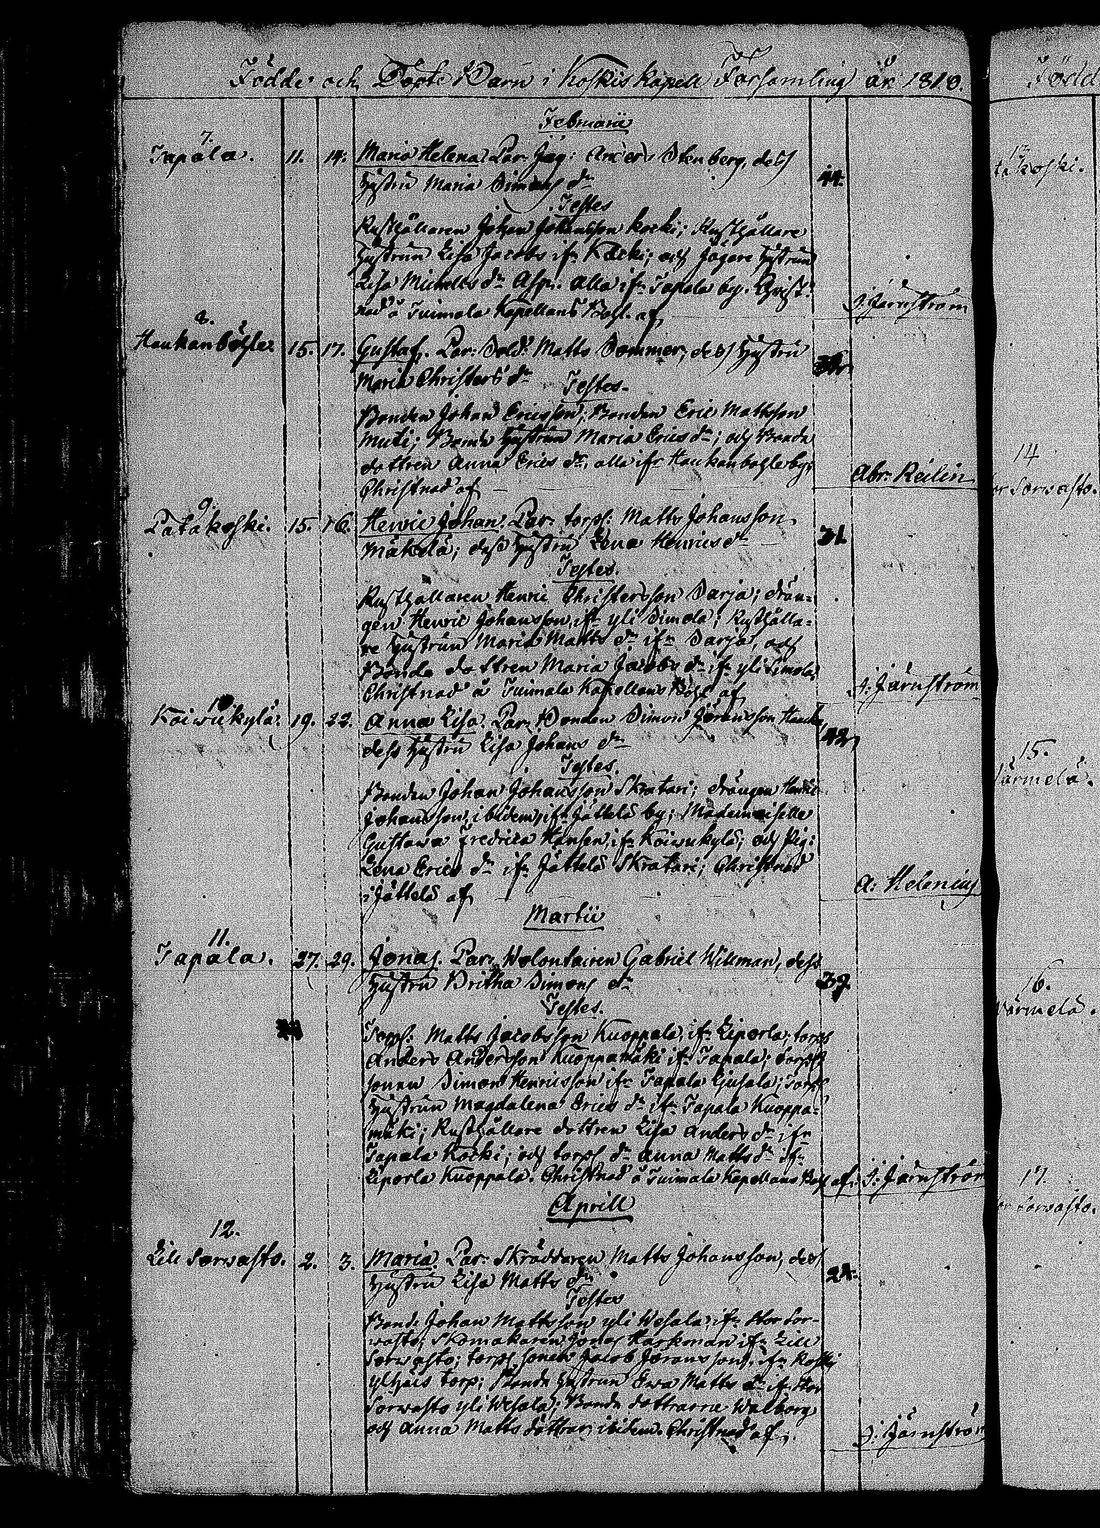 Födde och Döpte Barn i Koskis Kapell Församling år 1810.
Februarii
7.
Tapala. 11. 14. Maria Helena. Par. Jäg: Anders Stenberg, dess 44.
Hustru Maria Simons dr
Testes
Rusthållaren Johan Johansson Kocki; Rusthållare
Hustrun Lisa Jacobs ifr Kocki; och Jägare Hustrun
Lisa Michels dr Asp. alla ifr Tapala by. Christ-
nad å Tuimala Kapellans Bohl af J: Järnström
8.
Haukanböhle. 15. 17. Gustaf. Par: Sold: Matts Sommer, dess Hustru
Maria Christers dr Testes.
Bonden Johan Ericsson; Bonden Eric Mattsson
Muti; Bonde Hustrun Maria Erics dr; och Bonde
dottren Anna Erics dr, alla ifr Haukanböhle by;
Christnad af Abr: Reilin
9.
Patakoski. 15. 16. Henric Johan. Par: torp: Matts Johansson 31.
Mäkelä; dess Hustru Lena Henrics dr
Testes.
Rusthållaren Henric Christersson Sarja; drän-
gen Henric Johansson, ifr yli Simola; Rusthålla-
re Hustrun Maria Matts dr ifr Sarja, och
Bonde dottren Maria Jacobs dr ifr yli Simola
Christnad å Tuimala Kapellans Bohl af J: Järnström
Koiwukylä. 19. 22. Anna Lisa. Par: Bonden Simon Göransson 42.
dess Hustru Lisa Johans dr
Testes.
Bonden Johan Johansson Skratari; drängen Henric
Johansson, ibidem, ifr Jättelä by; Mademoiselle
Gustawa Fredrica Hansen, ifr Koiwukylä; och Pig:
Lena Erics dr ifr Jättelä Skratari; Christnad
i Jättelä af A: Helenius
Martii
11.
Tapala. 27. 29. Jonas. Par: Volontairen Gabriel Willman, dess 39.
Hustru Britha Simons dr
Testes.
Torp: Matts Jacobsson Kuoppala, ifr Liperla; torp:
Anders Andersson Kuoppamäki ifr Tapala; torp:
sonen Simon Henricsson ifr Tapala Ojusala; Torp:
Hustrun Magdalena Erics dr ifr Tapala Kuoppa-
mäki; Rusthållare dottren Lisa Anders dr ifr
Tapala Kocki; och torp: dr Anna Matts dr ifr
Liperla Kuoppala. Christnad å Tuimala Kapellans Bohl af: J: Järnström
Aprill
12.
Lill Sorwasto. 2. 3. Maria. Par: Skräddaren Matts Johansson, dess 24.
Hustru Lisa Matts dr
Testes
Bond: Johan Mattsson yli Wesala ifr Stor Sor-
wasto; Skomakaren Jonas Harkman ifr Lill
Sorwasto; torp: sonen Jacob Göransson, ifr Koski
ylhäis torp; Bonde Hustrun Ewa Matts dr ifr Stor
Sorwasto yli Wesala; Bonde dottrarne Walborg
och Anna Matts döttrar ibidem. Christnad af J: Järnström
Född
koski.
14
Sorwasto.
15.
Särmelä.
16.
Särmelä.
17.
Sorwasto.